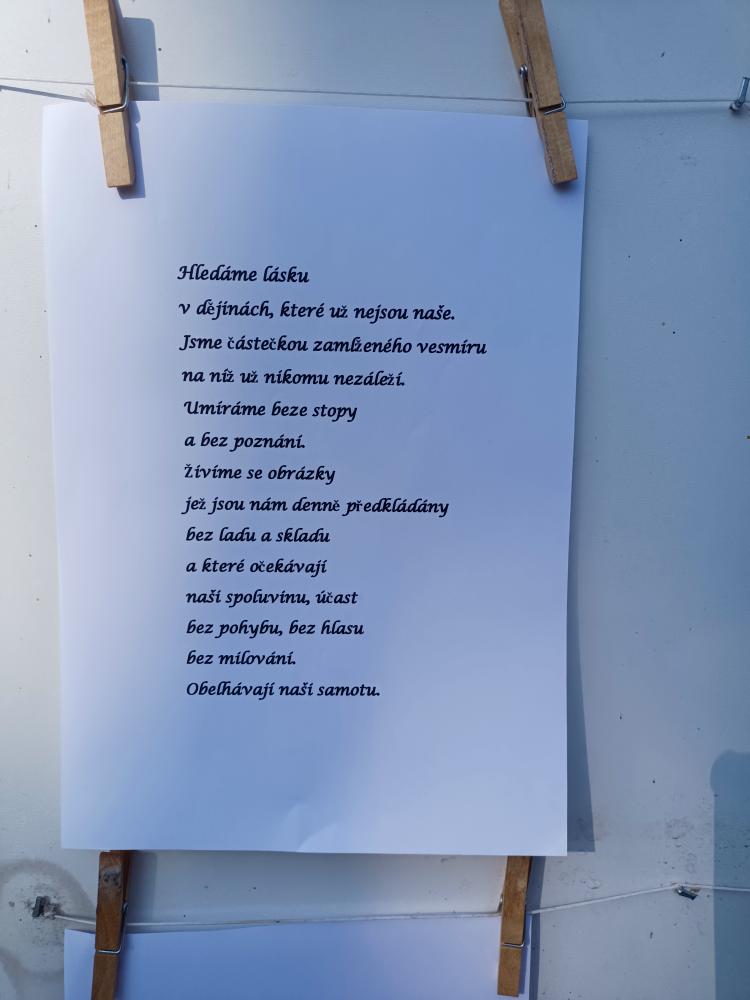 Hledáme lásku
v dějinách, které už nejsou naše.
Jsme částečkou zamlženého vesmíru
na níž už nikomu nezáleží.
Umíráme beze stopy
a bez poznání.
Živíme se obrázky
jež jsou nám denně předkládány
bez ladu a skladu
a které očekávají
naší spoluvinu, účast
bez pohybu, bez hlasu
bez milování.
Obelhávají naší samotu.